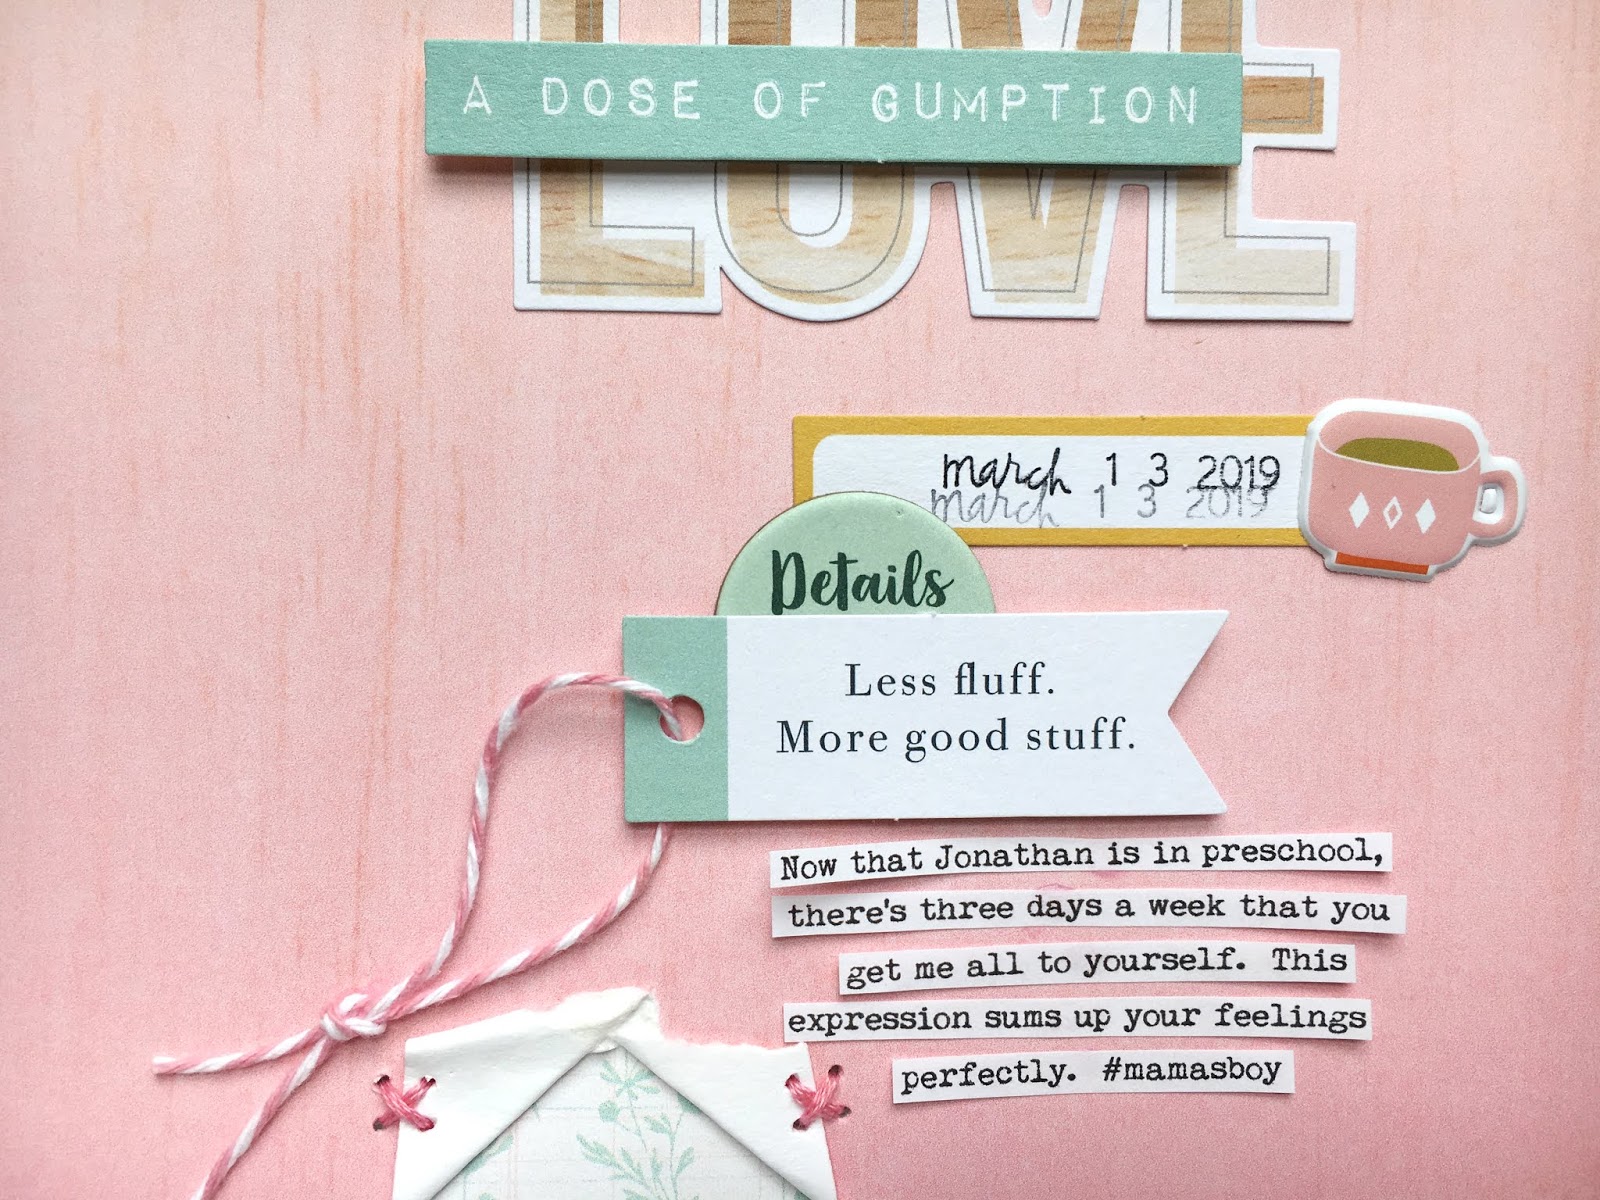 LOVE
A DOSE OF GUMPTION
march 13 2019
march 13 2019
Details
Less fluff.
More good stuff.
Now that Jonathan is in preschool,
there's three days a week that you
get me all to yourself. This
expression sums up your feelings
perfectly. #mamasboy